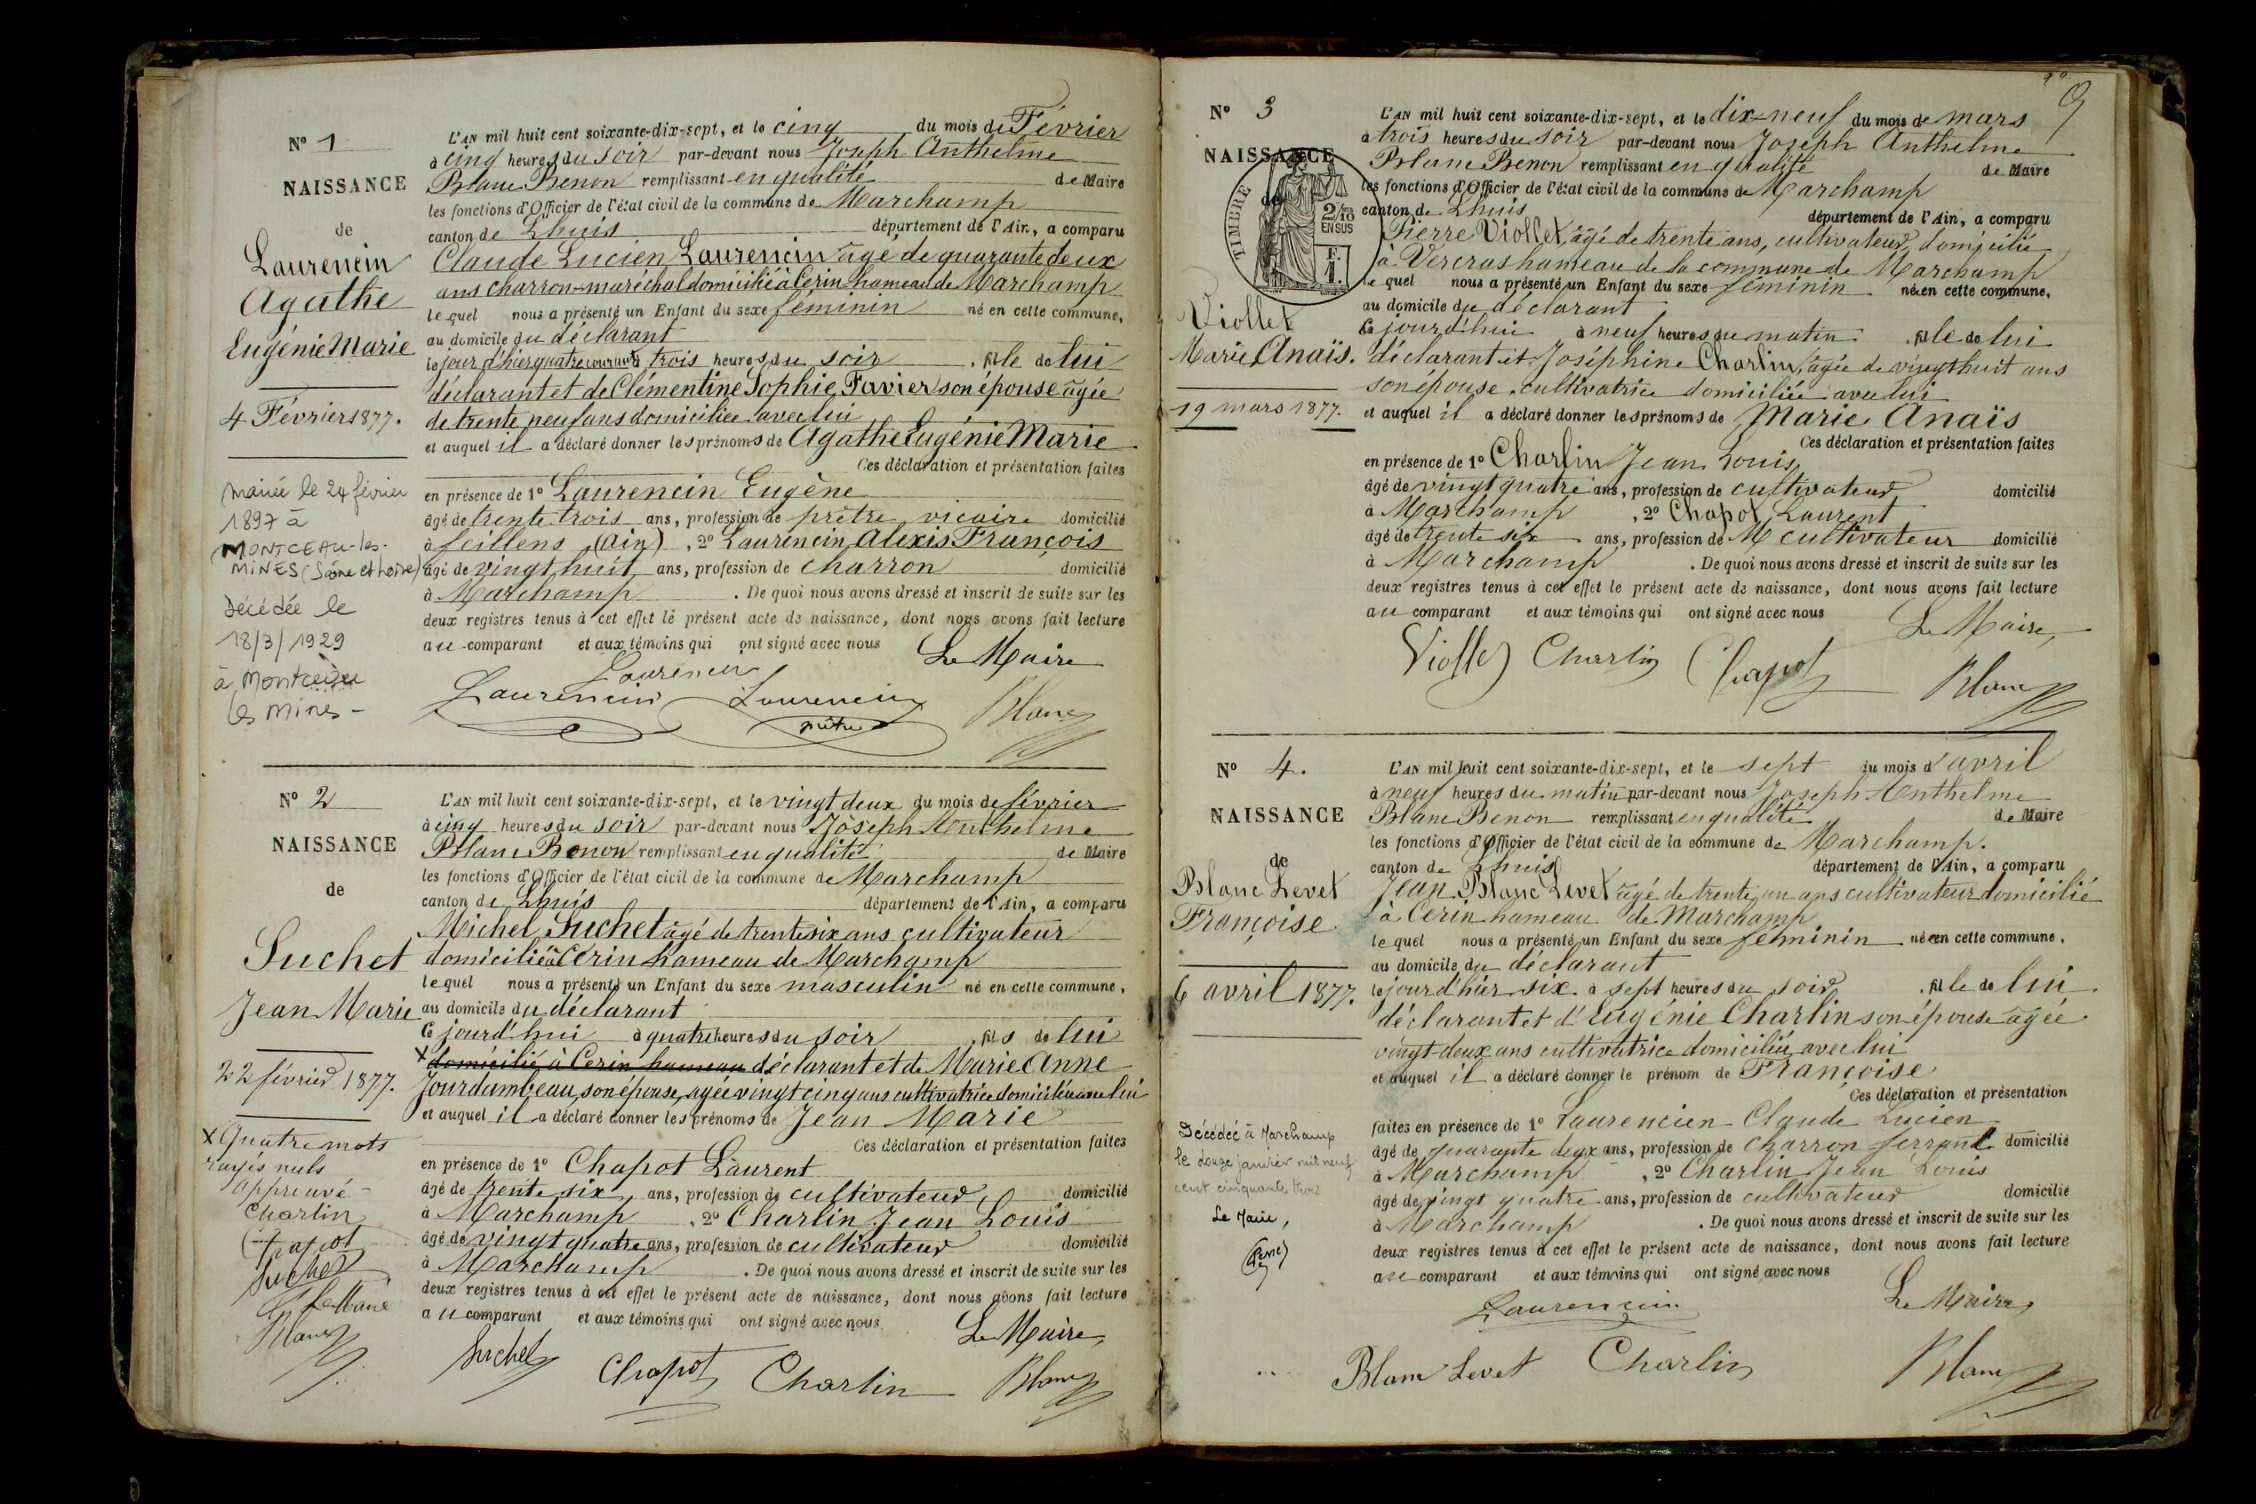 Nº 1
NAISSANCE
de
Laurencin
Agathe
Eugénie Marie
4 Février 1877.
mariée le 24 février
1897 à
MONTCEAU-les-
MINES (Saône et Loire)
Décédée le
18/3/1929
à Montceau
les Mines -
L'AN mil huit cent soixante-dix-sept, et le cinq du mois de Février
à cinq heures du soir par-devant nous Joseph Anthelme
Blanc Benon remplissant en qualité de Maire
les fonctions d'Officier de l'état civil de la commune de Marchamp
canton de Lhuis département de l'Ain, a comparu
Claude Lucien Laurencin âgé de quarante deux
ans charron-maréchal domicilié à Cerin hameau de Marchamp
lequel nous a présenté un Enfant du sexe féminin né en cette commune,
au domicile du déclarant
le jour d'hier quatre courant à trois heures du soir , fille de lui
déclarant et de Clémentine Sophie Favier son épouse âgée
de trente neuf ans domiciliée avec lui
et auquel il a déclaré donner les prénoms de Agathe Eugénie Marie
Ces déclaration et présentation faites
en présence de 1º Laurencin Eugène
âgé de trente trois ans, profession de prêtre vicaire domicilié
à feillens (Ain) , 2º Laurencin Alexis François
âgé de vingt huit ans, profession de charron domicilié
à Marchamp . De quoi nous avons dressé et inscrit de suite sur les
deux registres tenus à cet effet le présent acte de naissance, dont nous avons fait lecture
au comparant et aux témoins qui ont signé avec nous
Le Maire
Laurencin
Laurencin Laurencin Blanc
prêtre
Nº 2
NAISSANCE
de
Suchet
Jean Marie
22 février 1877.
X Quatre mots
rayés nuls
approuvé -
Charlin
Chapot
Suchet
Le Maire
Blanc
L'AN mil huit cent soixante-dix-sept, et le vingt deux du mois de février
à cinq heures du soir par-devant nous Joseph Anthelme
Blanc Benon remplissant en qualité de Maire
les fonctions d'Officier de l'état civil de la commune de Marchamp
canton de Lhuis département de l'Ain, a comparu
Michel Suchet âgé de trente six ans cultivateur
domicilié à Cerin hameau de Marchamp
lequel nous a présenté un Enfant du sexe masculin né en cette commune,
au domicile du déclarant
ce jourd'hui à quatre heures du soir , fils de lui
X domicilié à Cerin hameau déclarant et de Marie Anne
Jourdambeau, son épouse, agée vingt cinq ans cultivatrice domiciliée avec lui
et auquel il a déclaré donner les prénoms de Jean Marie
Ces déclaration et présentation faites
en présence de 1º Chapot Laurent
âgé de trente six ans, profession de cultivateur domicilié
à Marchamp , 2º Charlin Jean Louis
âgé de vingt quatre ans, profession de cultivateur domicilié
à Marchamp . De quoi nous avons dressé et inscrit de suite sur les
deux registres tenus à cet effet le présent acte de naissance, dont nous avons fait lecture
au comparant et aux témoins qui ont signé avec nous
Le Maire,
Suchet Chapot Charlin Blanc
9
Nº 3
NAISSANCE
de
TIMBRE
2/10
EN SUS
F.
1.
Viollet
Marie Anaïs.
19 mars 1877.
L'AN mil huit cent soixante-dix-sept, et le dix-neuf du mois de mars
à trois heures du soir par-devant nous Joseph Anthelme
Blanc Benon remplissant en qualité de Maire
les fonctions d'Officier de l'état civil de la commune de Marchamp
canton de Lhuis département de l'Ain, a comparu
Pierre Viollet, âgé de trente ans, cultivateur, domicilié
à Vercras hameau de la commune de Marchamp
lequel nous a présenté un Enfant du sexe féminin née en cette commune,
au domicile du déclarant
ce jourd'hui à neuf heures du matin , fille de lui
déclarant et Joséphine Charlin, âgée de vingt huit ans
son épouse, cultivatrice domiciliée avec lui
et auquel il a déclaré donner les prénoms de Marie Anaïs
Ces déclaration et présentation faites
en présence de 1º Charlin Jean Louis
âgé de vingt quatre ans, profession de cultivateur domicilié
à Marchamp , 2º Chapot Laurent
âgé de trente six ans, profession de M cultivateur domicilié
à Marchamp . De quoi nous avons dressé et inscrit de suite sur les
deux registres tenus à cet effet le présent acte de naissance, dont nous avons fait lecture
au comparant et aux témoins qui ont signé avec nous
Le Maire,
Viollet Charlin Chapot Blanc
Nº 4.
NAISSANCE
de
Blanc Levet
Françoise
6 avril 1877.
Décédée à Marchamp
le douze janvier mil neuf
cent cinquante trois
Le Maire,
L'AN mil huit cent soixante-dix-sept, et le sept du mois d'avril
à neuf heures du matin par-devant nous Joseph Anthelme
Blanc Benon remplissant en qualité de Maire
les fonctions d'Officier de l'état civil de la commune de Marchamp.
canton de Lhuis département de l'Ain, a comparu
Jean Blanc Levet âgé de trente un ans cultivateur domicilié
à Cerin hameau de Marchamp
lequel nous a présenté un Enfant du sexe féminin née en cette commune,
au domicile du déclarant
le jourd'hier six à sept heures du soir , fille de lui
déclarant et d'Eugénie Charlin son épouse agée
vingt-deux ans cultivatrice domiciliée avec lui
et auquel il a déclaré donner le prénom de Françoise
Ces déclaration et présentation
faites en présence de 1º Laurencien Claude Lucien
âgé de quarante deux ans, profession de charron ferrant domicilié
à Marchamp , 2º Charlin Jean Louis
âgé de vingt quatre ans, profession de cultivateur domicilié
à Marchamp . De quoi nous avons dressé et inscrit de suite sur les
deux registres tenus à cet effet le présent acte de naissance, dont nous avons fait lecture
au comparant et aux témoins qui ont signé avec nous
Laurencin Le Maire,
Blanc Levet Charlin Blanc